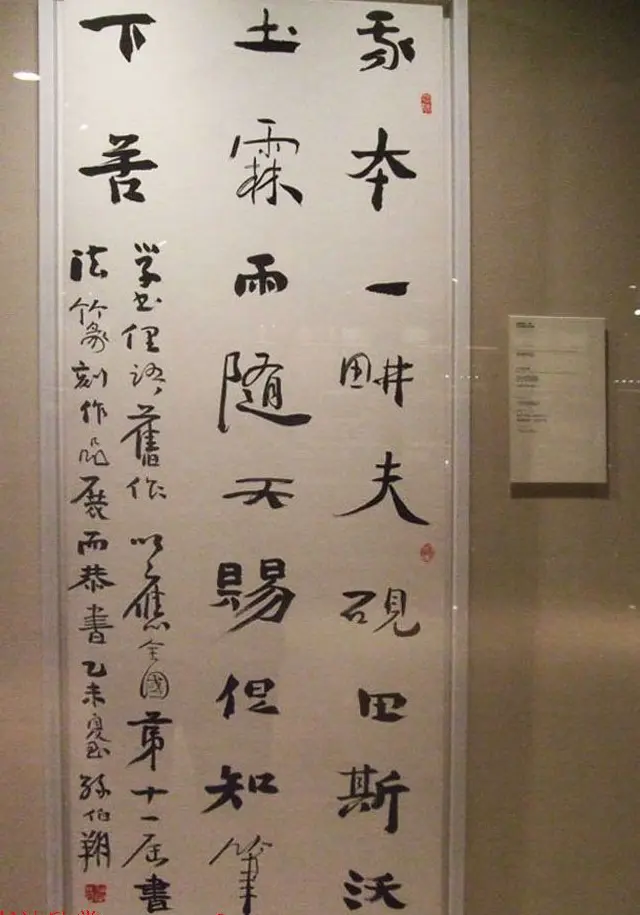 我本一畊夫硯田斯沃
土霖雨隨天賜但知筆
下苦
学书俚語舊作以應全國第十一届書
法篆刻作品展而恭書乙未夏孫伯翔